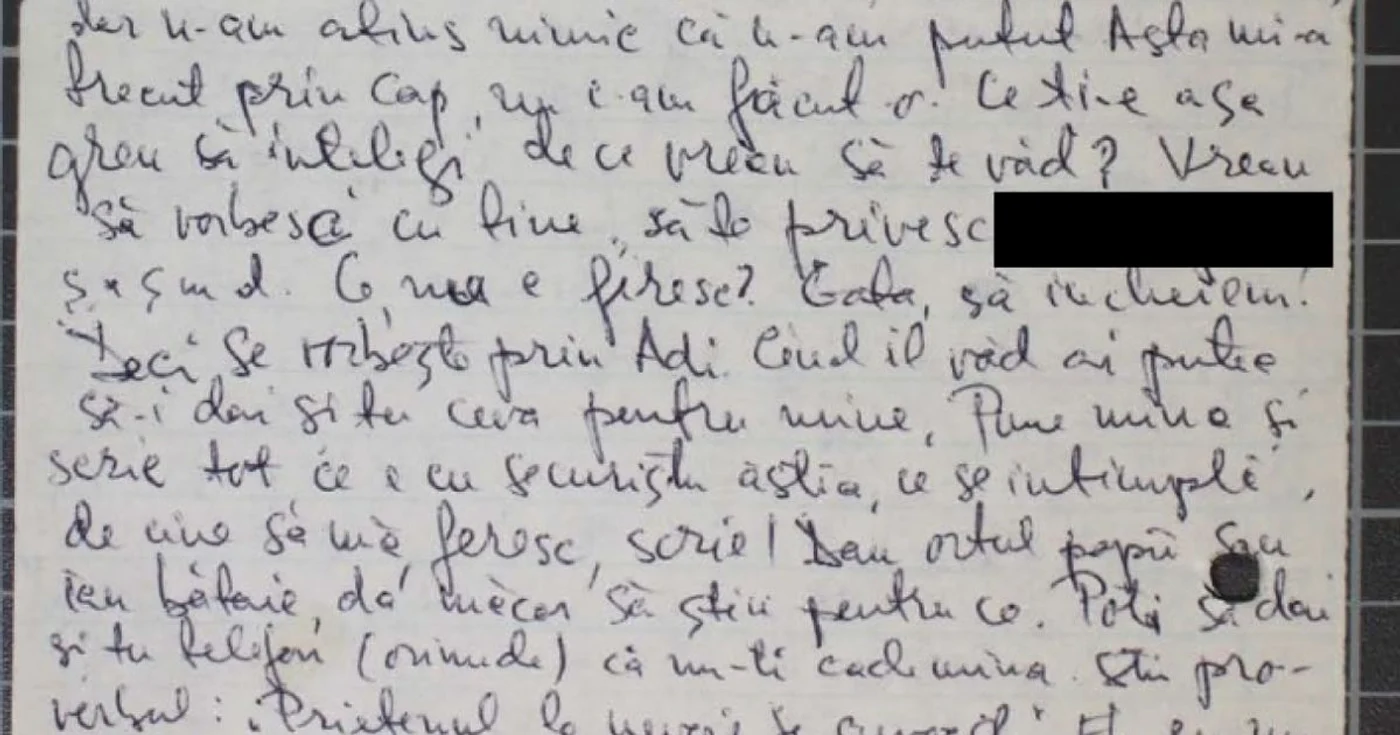 dar n-am atins nimic că n-am putut Asta mi-a
trecut prin cap, am făcut-o! Ce ti-e aşa
greu să intelegi de ce vreau să te văd? Vreau
să vorbesc cu tine, să te privesc
ş.a.ş.m.d. Ce, nu e firesc? Gata, să incheiem!
Deci, se vorbeşte prin Adi. Cind il văd ai putea
să-i dai si tu ceva pentru mine. Pune mina si
scrie tot ce e cu securiştii aştia, ce se intimplă,
de cine să mă feresc, scrie! Dau ortul popii sau
iau bătaie, da' măcar să ştiu pentru ce. Poti să dai
si tu telefon (oriunde) că nu-ti cade mina. Stii pro-
verbul: "Prietenul la nevoie se